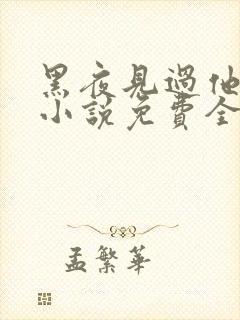 黑夜見過他
小說免費全
孟繁華